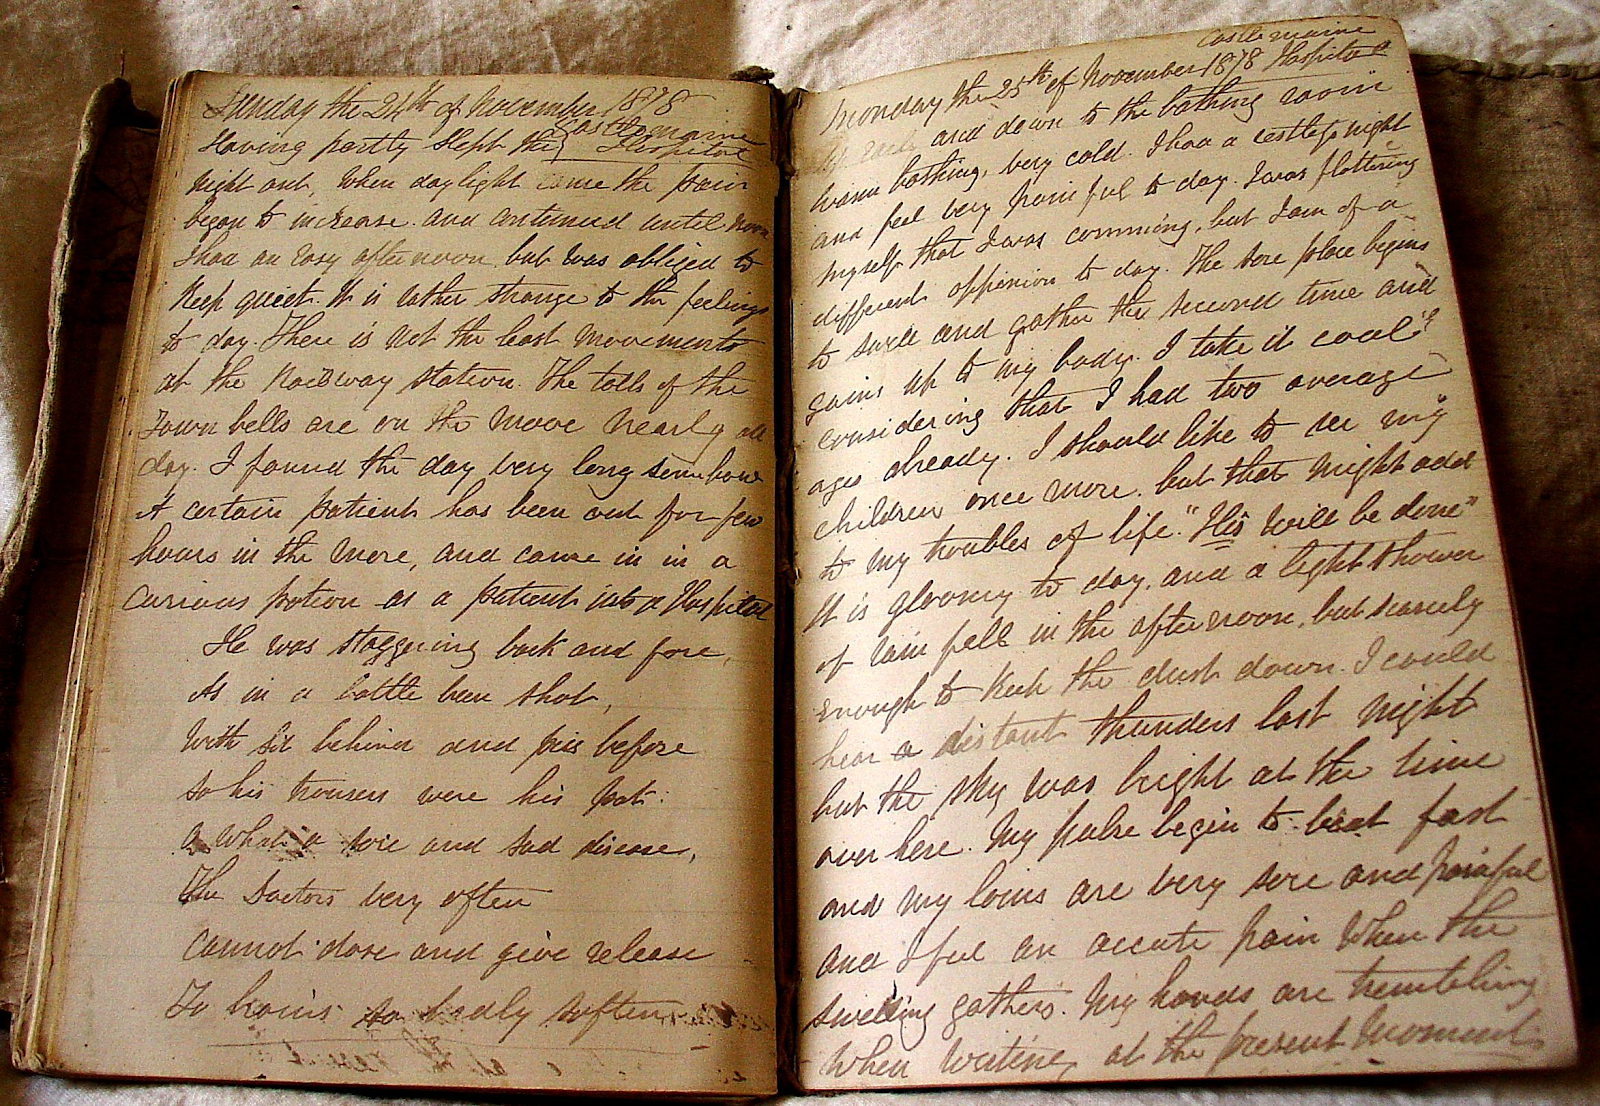 Sunday the 24th of November 1878
Castlemaine
Having partly slept the Hospital
night out, When daylight came the pain
began to increase. and continued until noon
I had an Easy afternoon but was obliged to
Keep quiet. It is rather strange to the feelings
to day. There is not the least movements
at the Railway station. The tolls of the
Town bells are on the move nearly all
day. I found the day very long somehow
A certain patient has been out for few
hours in the more, and came in in a
curious potion as a patient into a Hospital
He was staggering back and fore,
As in a battle been shot,
With behind and before
So his trousers were his pot.
What a sore and sad disease,
The Doctors very often
Cannot dose and give release
To so badly soften
Castlemaine
Monday the 25th of November 1878 Hospital
Up Early and down to the bathing room
warm bathing, very cold. I had a restless night
and feel very painful to day. I was flattering
myself that I was comming, but I am of a
different oppinion to day. The sore place begins
to swell and gather the second time and
gains up to my body. I take it cool
considering that I had two average
ages already. I should like to see my
children once more. but that might add
to my troubles of life. "His will be done"
It is gloomy to day, and a light shower
of rain fell in the afternoon, but scarcely
enough to Keep the dust down. I could
hear a distant thunders last night
but the sky was bright at the time
over here. My pulse begin to beat fast
and my loins are very sore and painful
and I feel an accute pain When the
swelling gathers. My hands are trembling
When writing at the present moment.